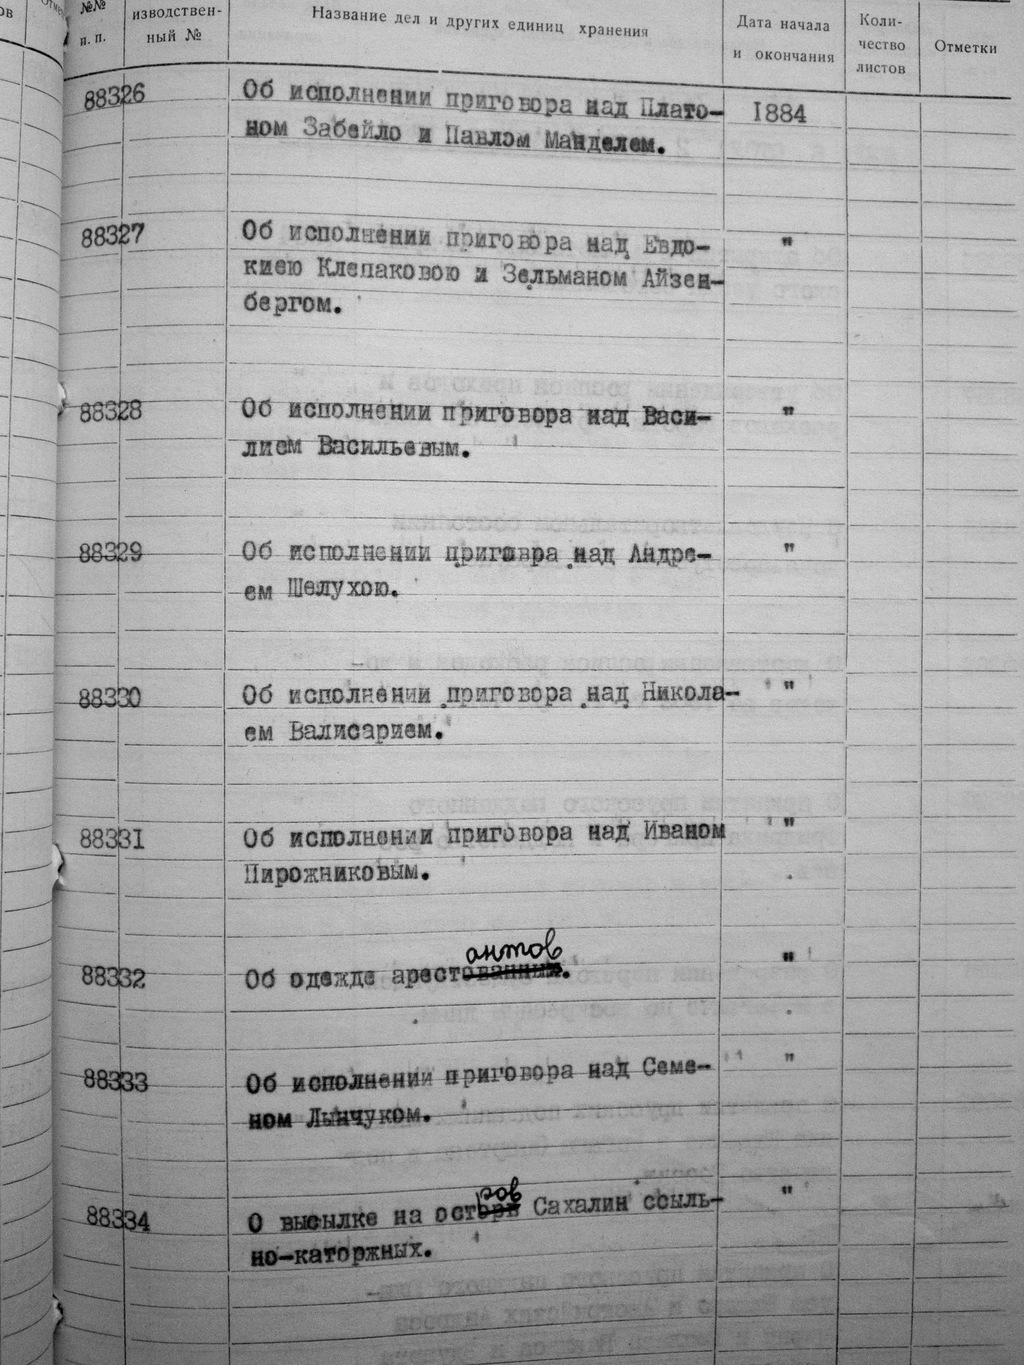 №№
п. п.
изводствен-
ный №
Название дел и других единиц хранения
Дата начала
и окончания
Коли-
чество
листов
Отметки
88326
Об исполнении приговора над Плато-
ном Забейло и Павлом Манделем.
1884
88327
Об исполнении приговора над Евдо-
киею Клепаковою и Зельманом Айзен-
бергом.
"
88328
Об исполнении приговора над Васи-
лием Васильевым.
"
88329
Об исполнении пригавра над Андре-
ем Шелухою.
"
88330
Об исполнении приговора над Никола-
ем Валисарием.
"
88331
Об исполнении приговора над Иваном
Пирожниковым.
"
88332
антов
Об одежде арестованных.
"
88333
Об исполнении приговора над Семе-
ном Лынчуком.
"
88334
ров
О высылке на осторв Сахалин ссыль-
но-каторжных.
"